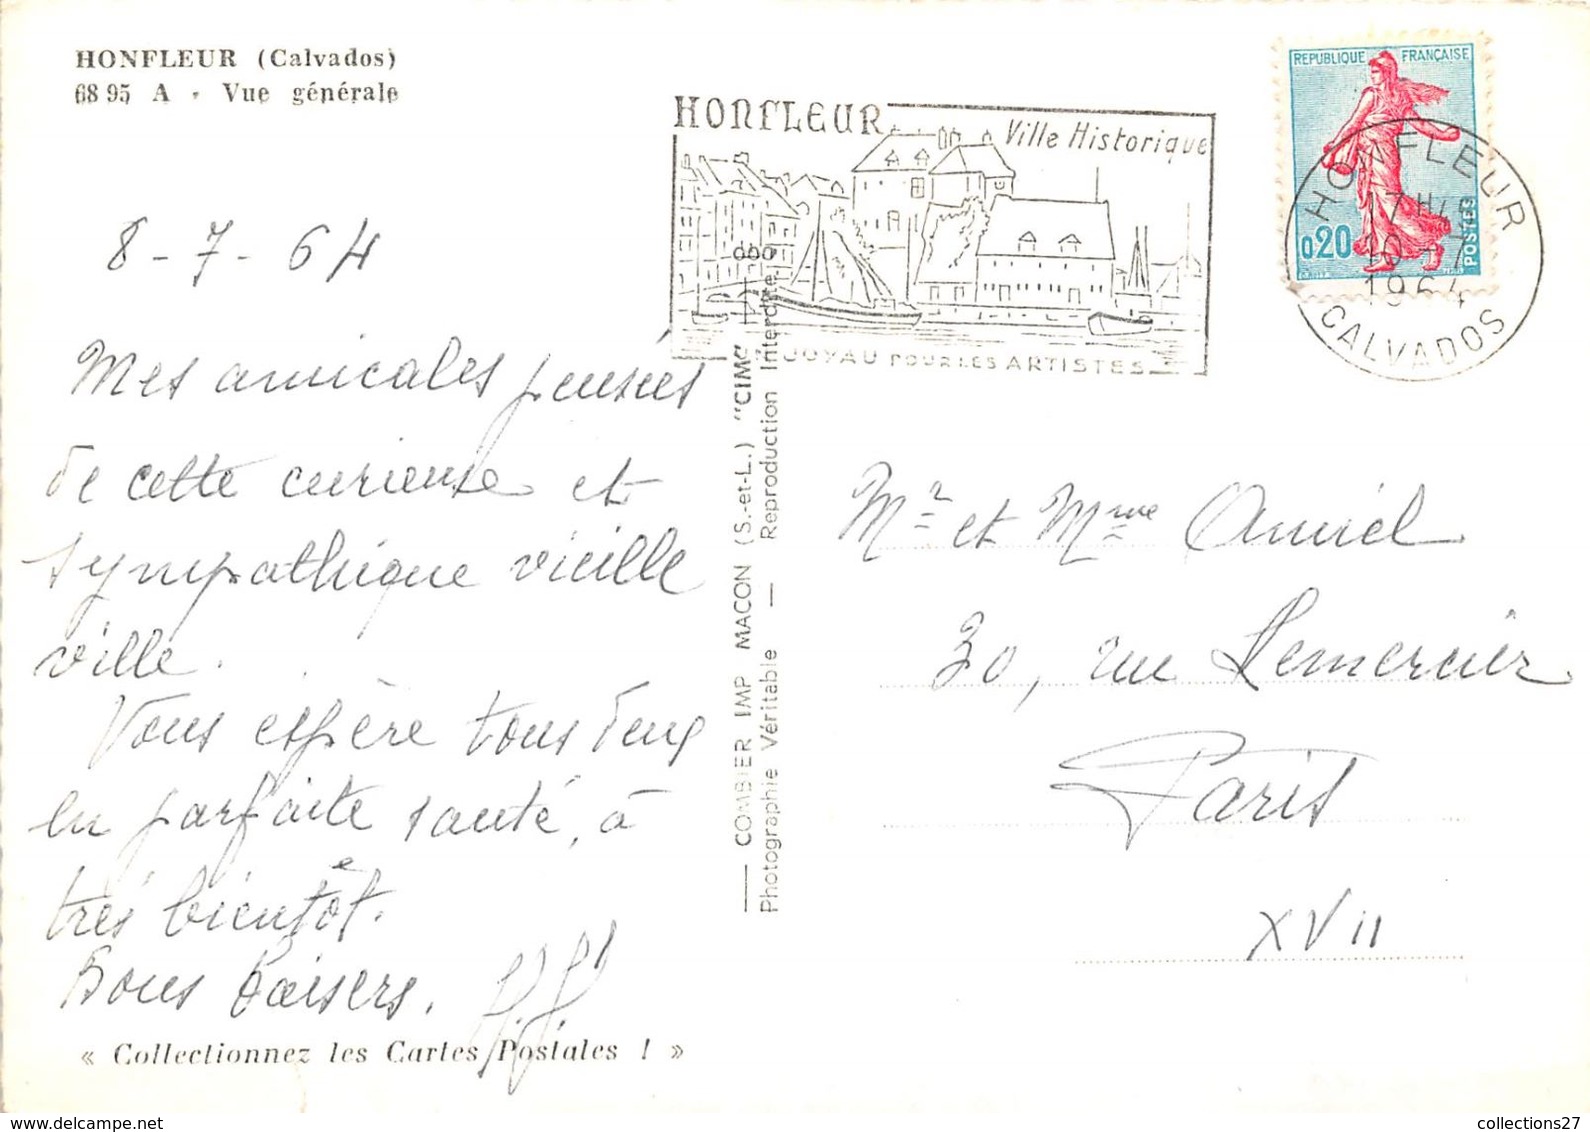 HONFLEUR (Calvados)
68 95 A - Vue générale
HONFLEUR
Ville Historique
JOYAU POUR LES ARTISTES
REPUBLIQUE FRANÇAISE
0,20
POSTES
HONFLEUR
17H
10 - 7
1964
CALVADOS
8 - 7 - 64
Mes amicales pensées
de cette curieuse et
sympathique vieille
ville.
Vous espère tous deux
en parfaite santé, à
très bientôt.
Bons baisers.
COMBIER IMP MACON (S.-et-L.) "CIM"
Photographie Véritable — Reproduction Interdite
Mr et Mme Amiel
30, rue Lemercier
Paris
XVII
« Collectionnez les Cartes Postales ! »
collections27